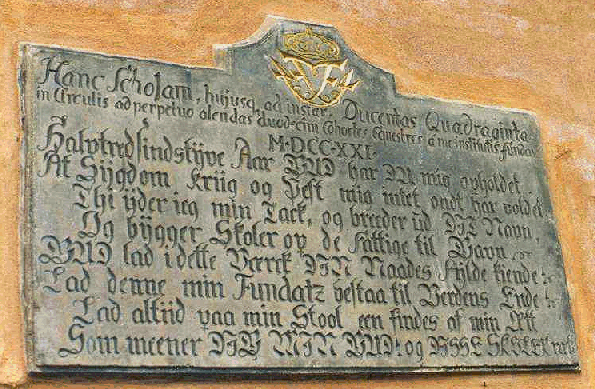 Hanc Scholam, hujusq, ad instar, Ducentas Quadraginta
in Circulis ad perpetuo alendas duodecim cohortes Equestres a me institutis fundavi
M·DCC·XXI·
Halvtredsindstÿve Aar GUD har DU mig opholdet
At Sÿgdom kriig og Pest mig intet ondt har voldet
Thi ÿder ieg min Tack, og breeder ud DIT Navn
Og bÿgger Skoler op de fattige til Gavn
GUD lad i dette Værck DIN Naades Fÿlde kiende
Lad denne min Fundatz bestaa til Verdens Ende
Lad altid paa min Stool een findes af min Ætt
Som meener DIG MIN GUD og DISSE SKOLER